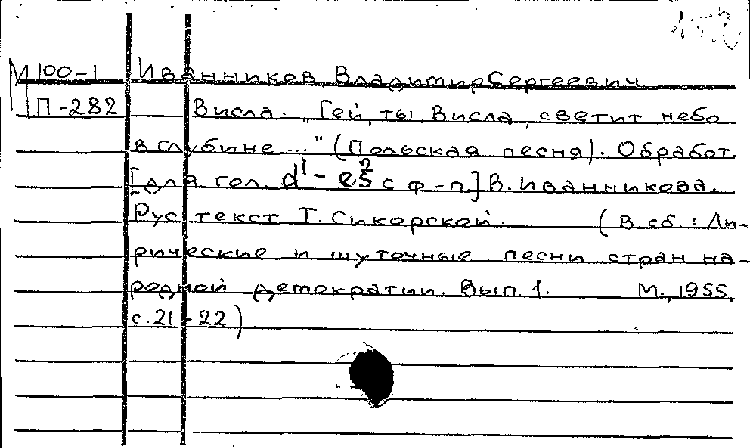 М 100-1 Иванников, Владимир Сергеевич
П-282 Висла. "Гей, ты, Висла, светит небо
в глубине ..." (Польская песня). Обработ.
[для гол. d¹ - es² с ф-п] В. Иванникова.
Рус. текст Т. Сикорской. (В сб.: Ли-
рические и шуточные песни стран на-
родной демократии. Вып. 1. М., 1955,
с. 21-22)